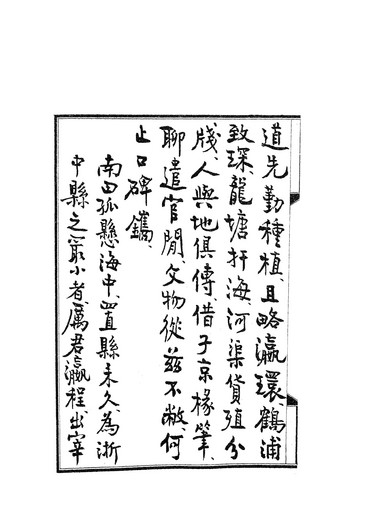 道先勤種植、且略瀛環、鶴浦
致琛、龍塘扞海、河渠貨殖分
牋、人與地俱傳、借子京椽筆、
聊遣官閒、文物從茲不敝、何
止口碑鐫、
南田孤懸海中、置縣未久、為浙
中縣之最小者、厲君瀛程出宰